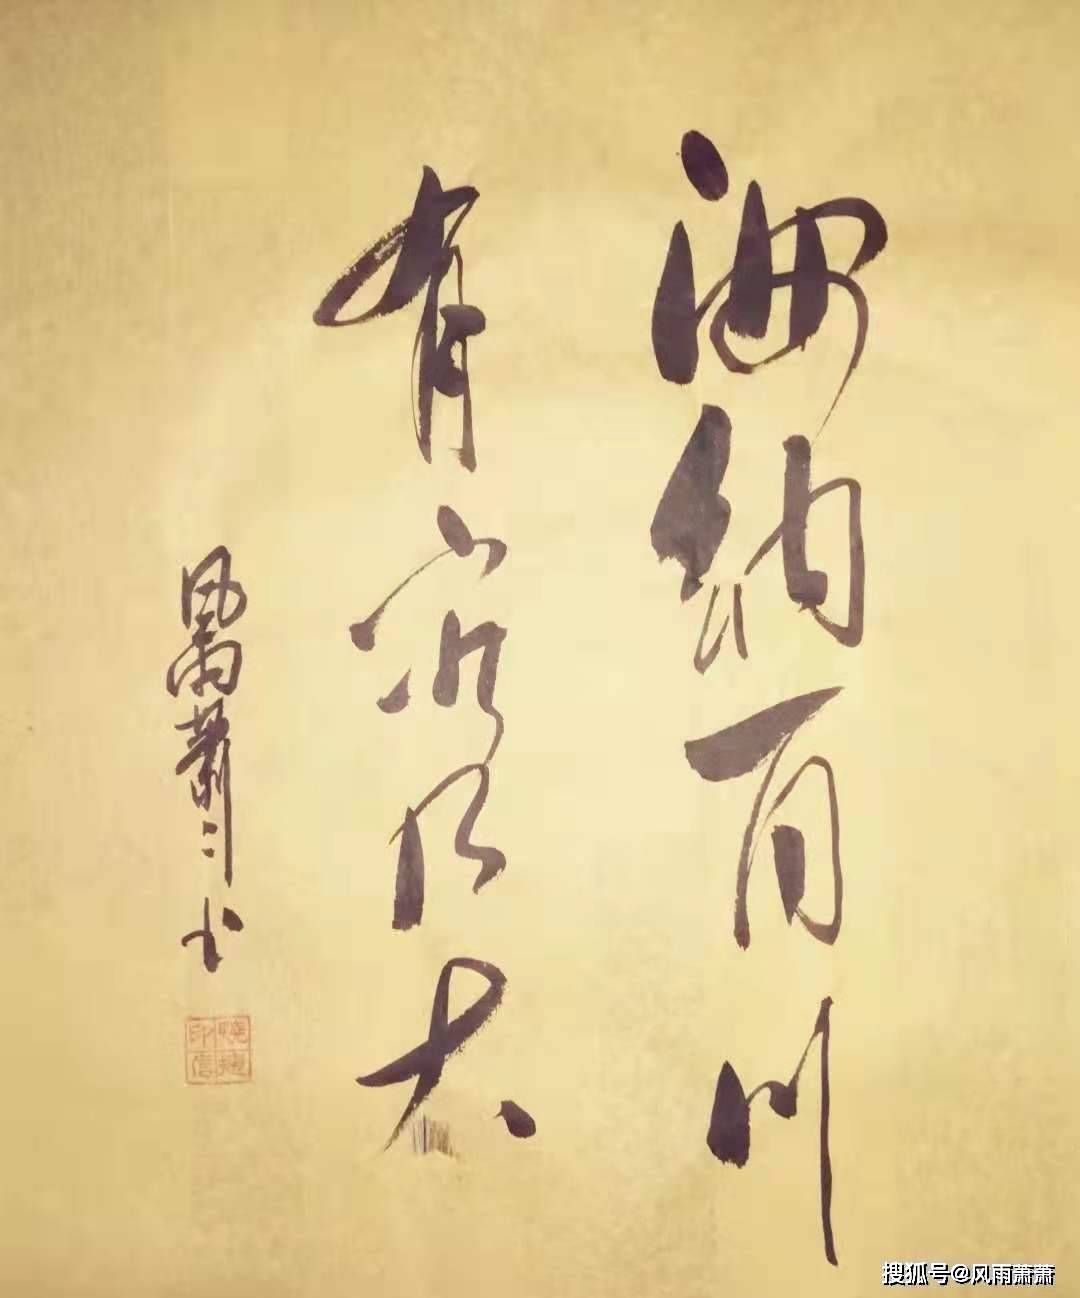 海纳百川
有容乃大
风雨萧萧书
印信
搜狐号@风雨萧萧